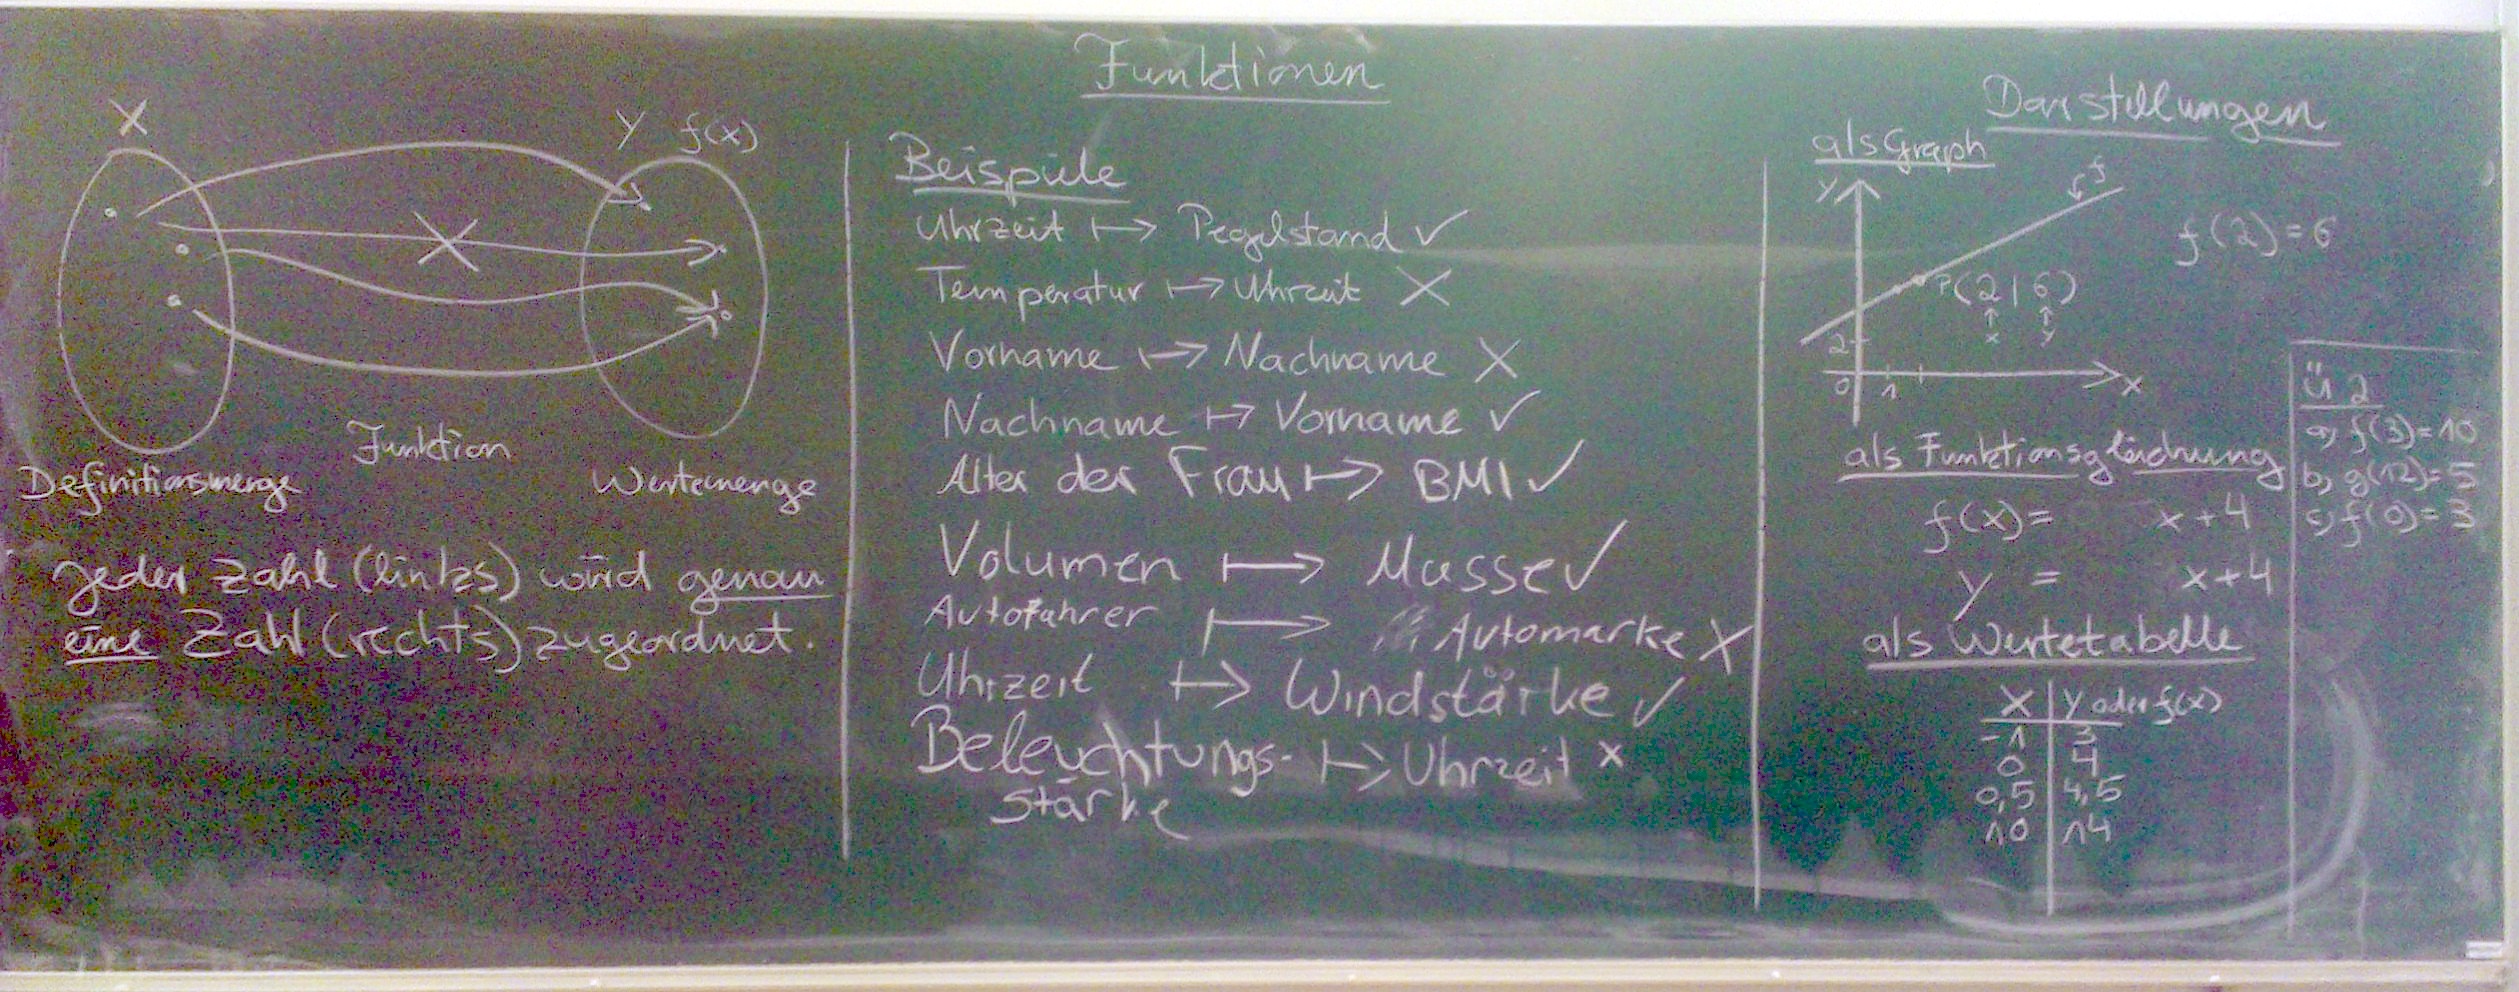 Funktionen
X
Y f(x)
Funktion
Definitionsmenge
Wertemenge
Jeder Zahl (links) wird genau
eine Zahl (rechts) zugeordnet.
Beispiele
Uhrzeit ↦ Pegelstand ✓
Temperatur ↦ Uhrzeit X
Vorname ↦ Nachname X
Nachname ↦ Vorname ✓
Alter der Frau ↦ BMI ✓
Volumen ↦ Masse ✓
Autofahrer ↦ Automarke X
Uhrzeit ↦ Windstärke ✓
Beleuchtungs- ↦ Uhrzeit x
stärke
Darstellungen
als Graph
y
f
f(2)=6
P(2|6)
↑ ↑
x y
2
0 1
x
als Funktionsgleichung
f(x)= x+4
y = x+4
als Wertetabelle
X | Y oder f(x)
-1 | 3
0 | 4
0,5 | 4,5
10 | 14
Ü 2
a) f(3)=10
b) g(12)=5
c) f(0)=3